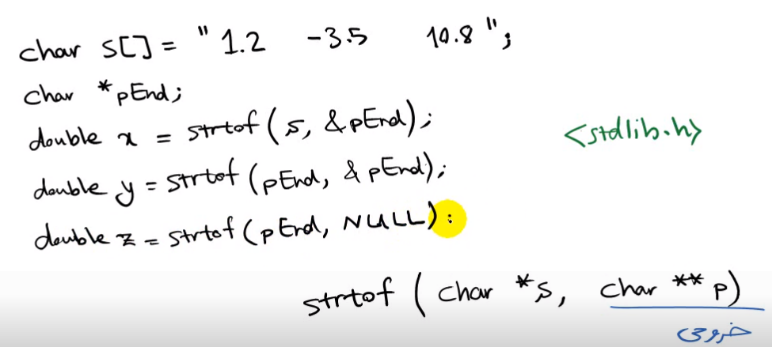 char s[] = "1.2 -3.5 10.8";
char *pEnd;
double x = strtof(s, &pEnd);
<stdlib.h>
double y = strtof(pEnd, &pEnd);
double z = strtof(pEnd, NULL);
strtof ( char *s, char ** p)
خروجی